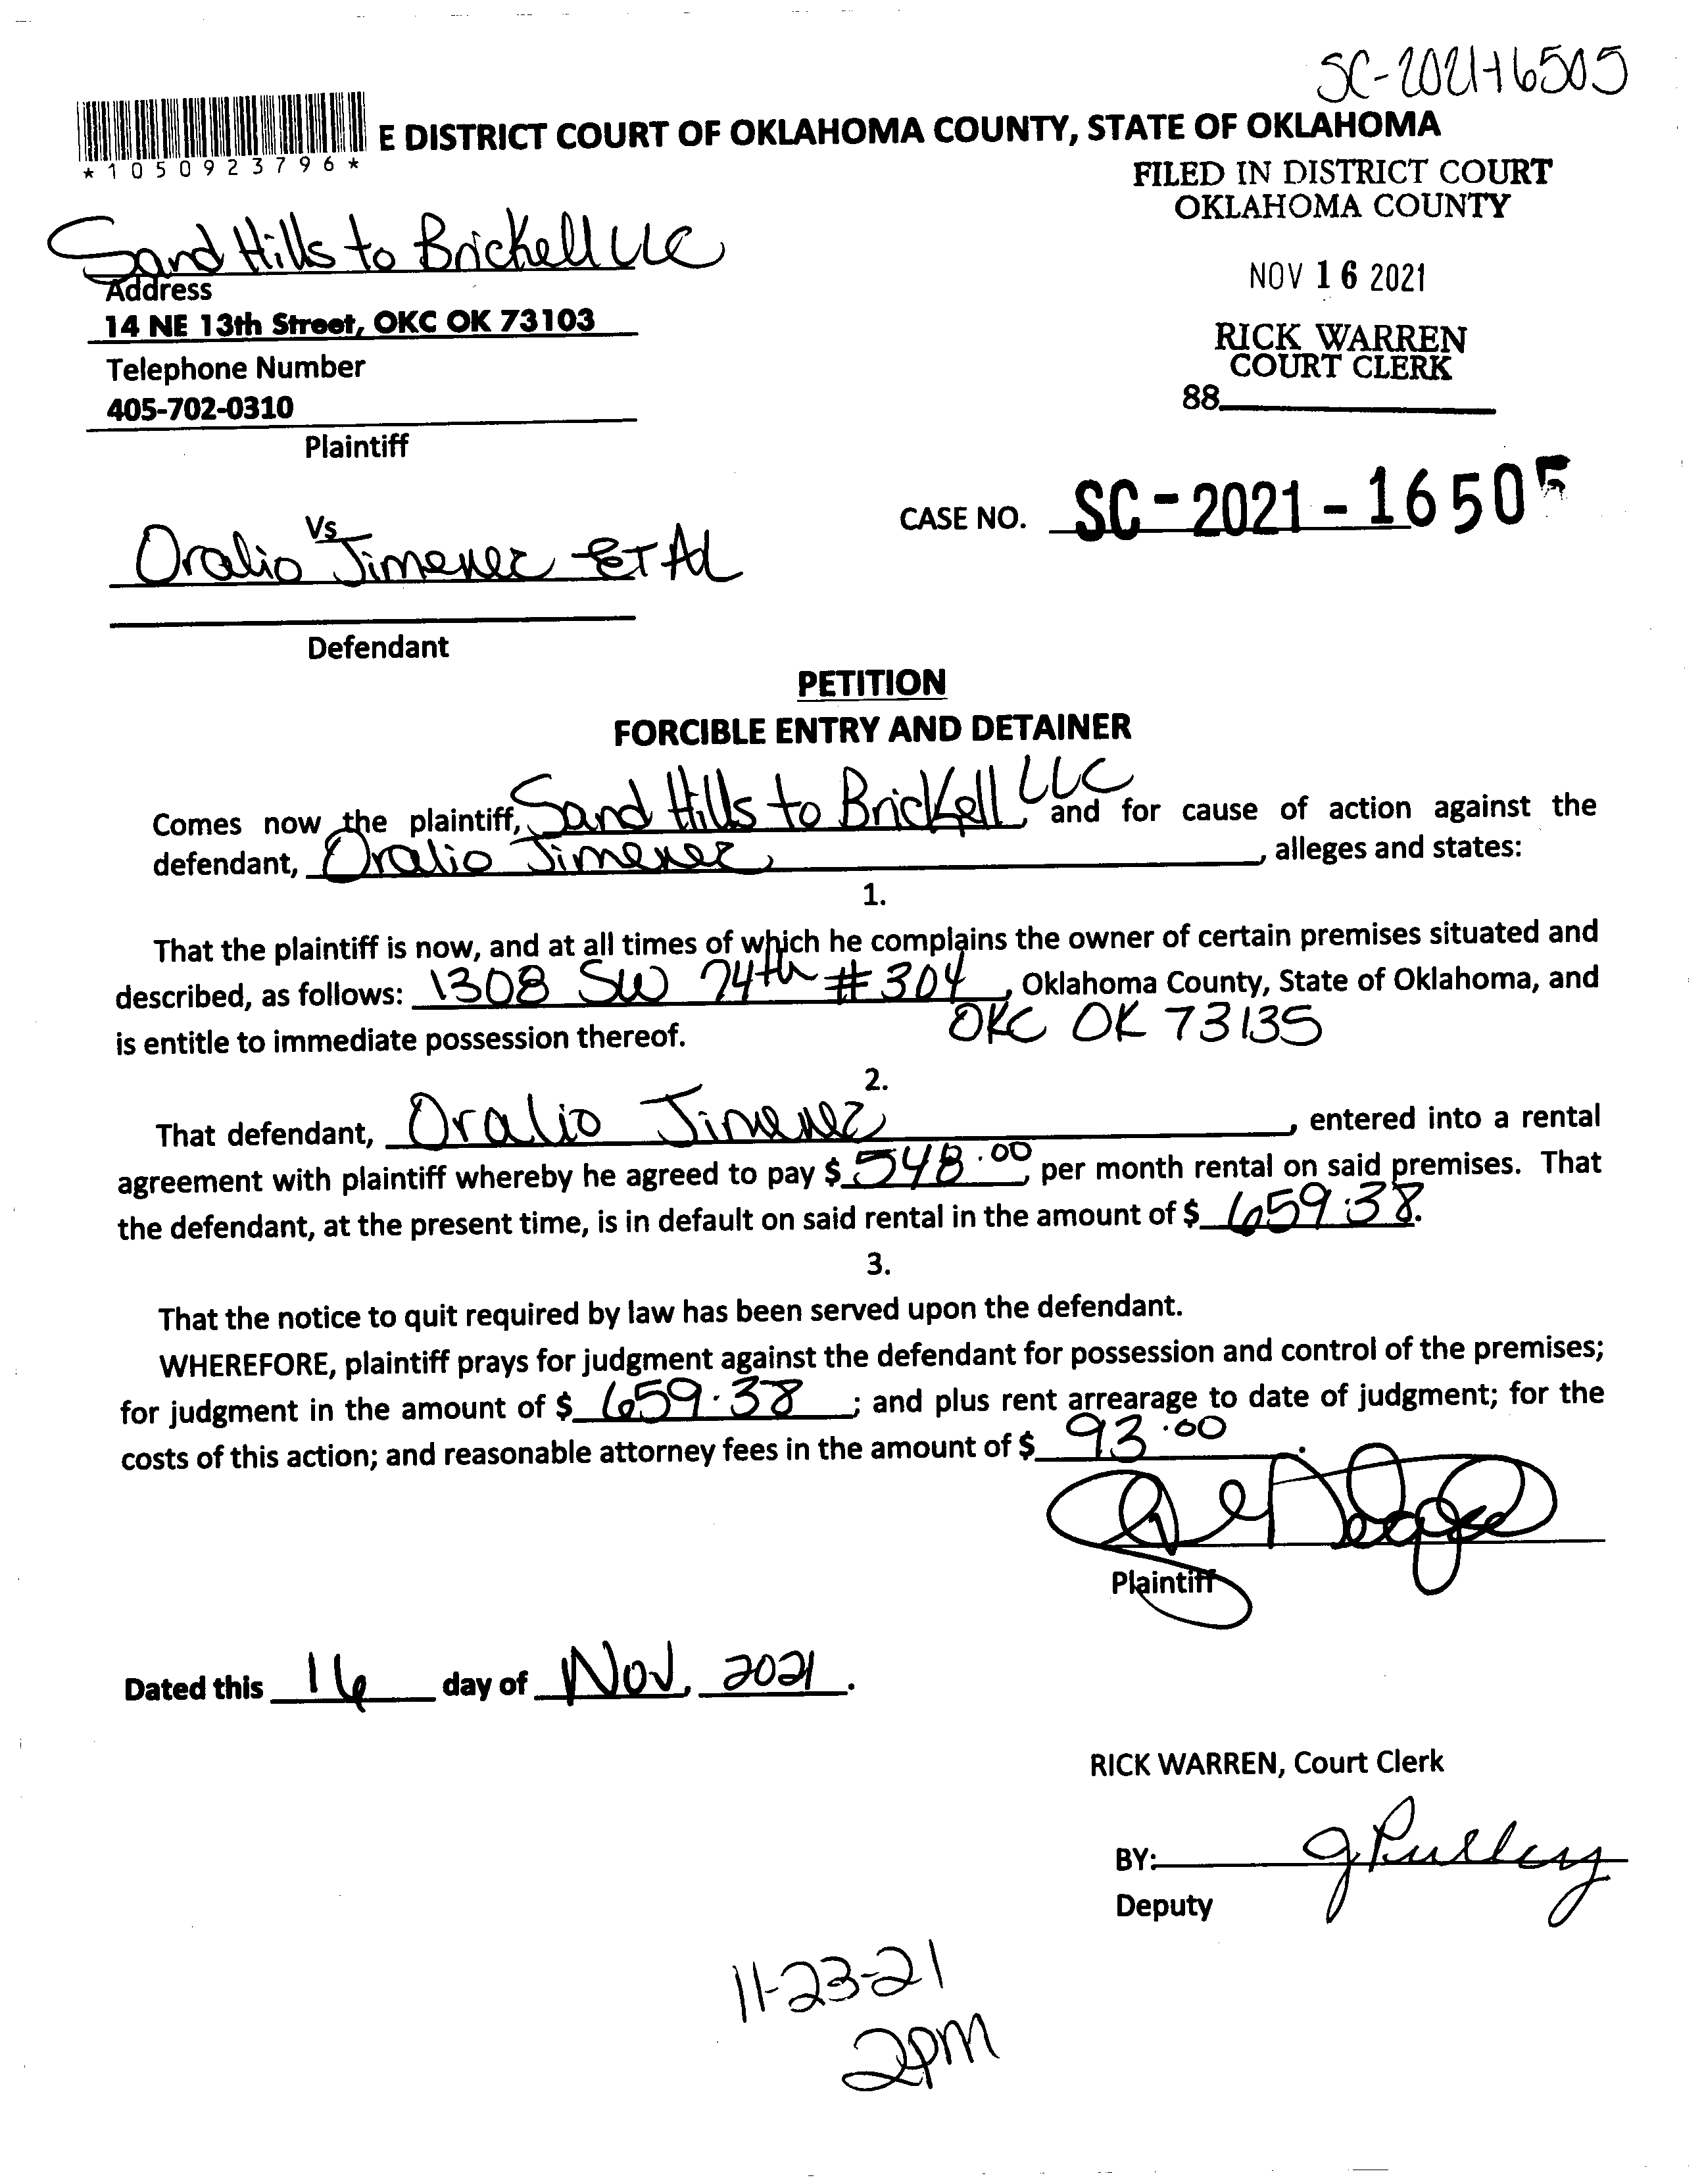 SC-2021-16505
E DISTRICT COURT OF OKLAHOMA COUNTY, STATE OF OKLAHOMA
*1050923796*
FILED IN DISTRICT COURT
OKLAHOMA COUNTY
Sand Hills to Brickell LLC
NOV 16 2021
Address
14 NE 13th Street, OKC OK 73103
RICK WARREN
COURT CLERK
Telephone Number
88
405-702-0310
Plaintiff
CASE NO. SC-2021-16505
Vs
Oralio Jimenez ET AL
Defendant
PETITION
FORCIBLE ENTRY AND DETAINER
Comes now the plaintiff, Sand Hills to Brickell LLC, and for cause of action against the
defendant, Oralio Jimenez, , alleges and states:
1.
That the plaintiff is now, and at all times of which he complains the owner of certain premises situated and
described, as follows: 1308 SW 74th #304, Oklahoma County, State of Oklahoma, and
OKC OK 73135
is entitle to immediate possession thereof.
2.
That defendant, Oralio Jimenez, entered into a rental
agreement with plaintiff whereby he agreed to pay $ 548.00, per month rental on said premises. That
the defendant, at the present time, is in default on said rental in the amount of $ 659.38.
3.
That the notice to quit required by law has been served upon the defendant.
WHEREFORE, plaintiff prays for judgment against the defendant for possession and control of the premises;
for judgment in the amount of $ 659.38 ; and plus rent arrearage to date of judgment; for the
costs of this action; and reasonable attorney fees in the amount of $ 93.00.
Plaintiff
Dated this 16 day of Nov, 2021.
RICK WARREN, Court Clerk
BY: J Pulley
Deputy
11-23-21
2pm